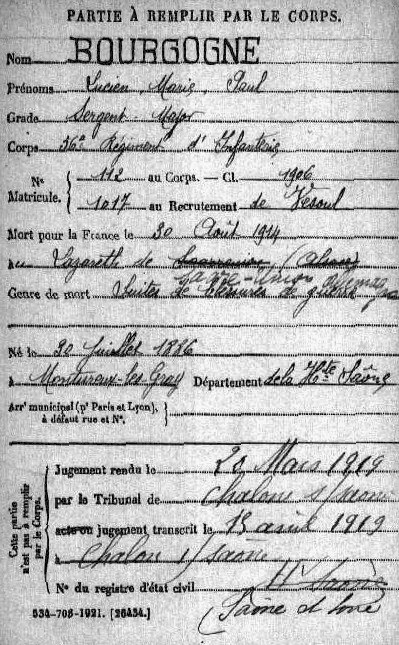 PARTIE À REMPLIR PAR LE CORPS.
Nom BOURGOGNE
Prénoms Lucien, Marie, Paul
Grade Sergent-Major
Corps 56e Régiment d'Infanterie
Nos Matricule. 112 au Corps. — Cl. 1906
1017 au Recrutement de Vesoul
Mort pour la France le 30 Août 1914
au Lazareth de
Genre de mort Suites de blessures de guerre
Né le 30 juillet 1886
à Montureux-les-Gray Département de la Hte Saône
Arrt municipal (pr Paris et Lyon),
à défaut rue et No.
Cette partie
n'est pas à remplir
par le Corps.
Jugement rendu le 20 Mars 1919
par le Tribunal de Chalons s/Saone
acte ou jugement transcrit le 13 avril 1919
à Chalon s/Saône
No du registre d'état civil Hte Saône
(Saône et Loire
534-708-1921. [26434.]